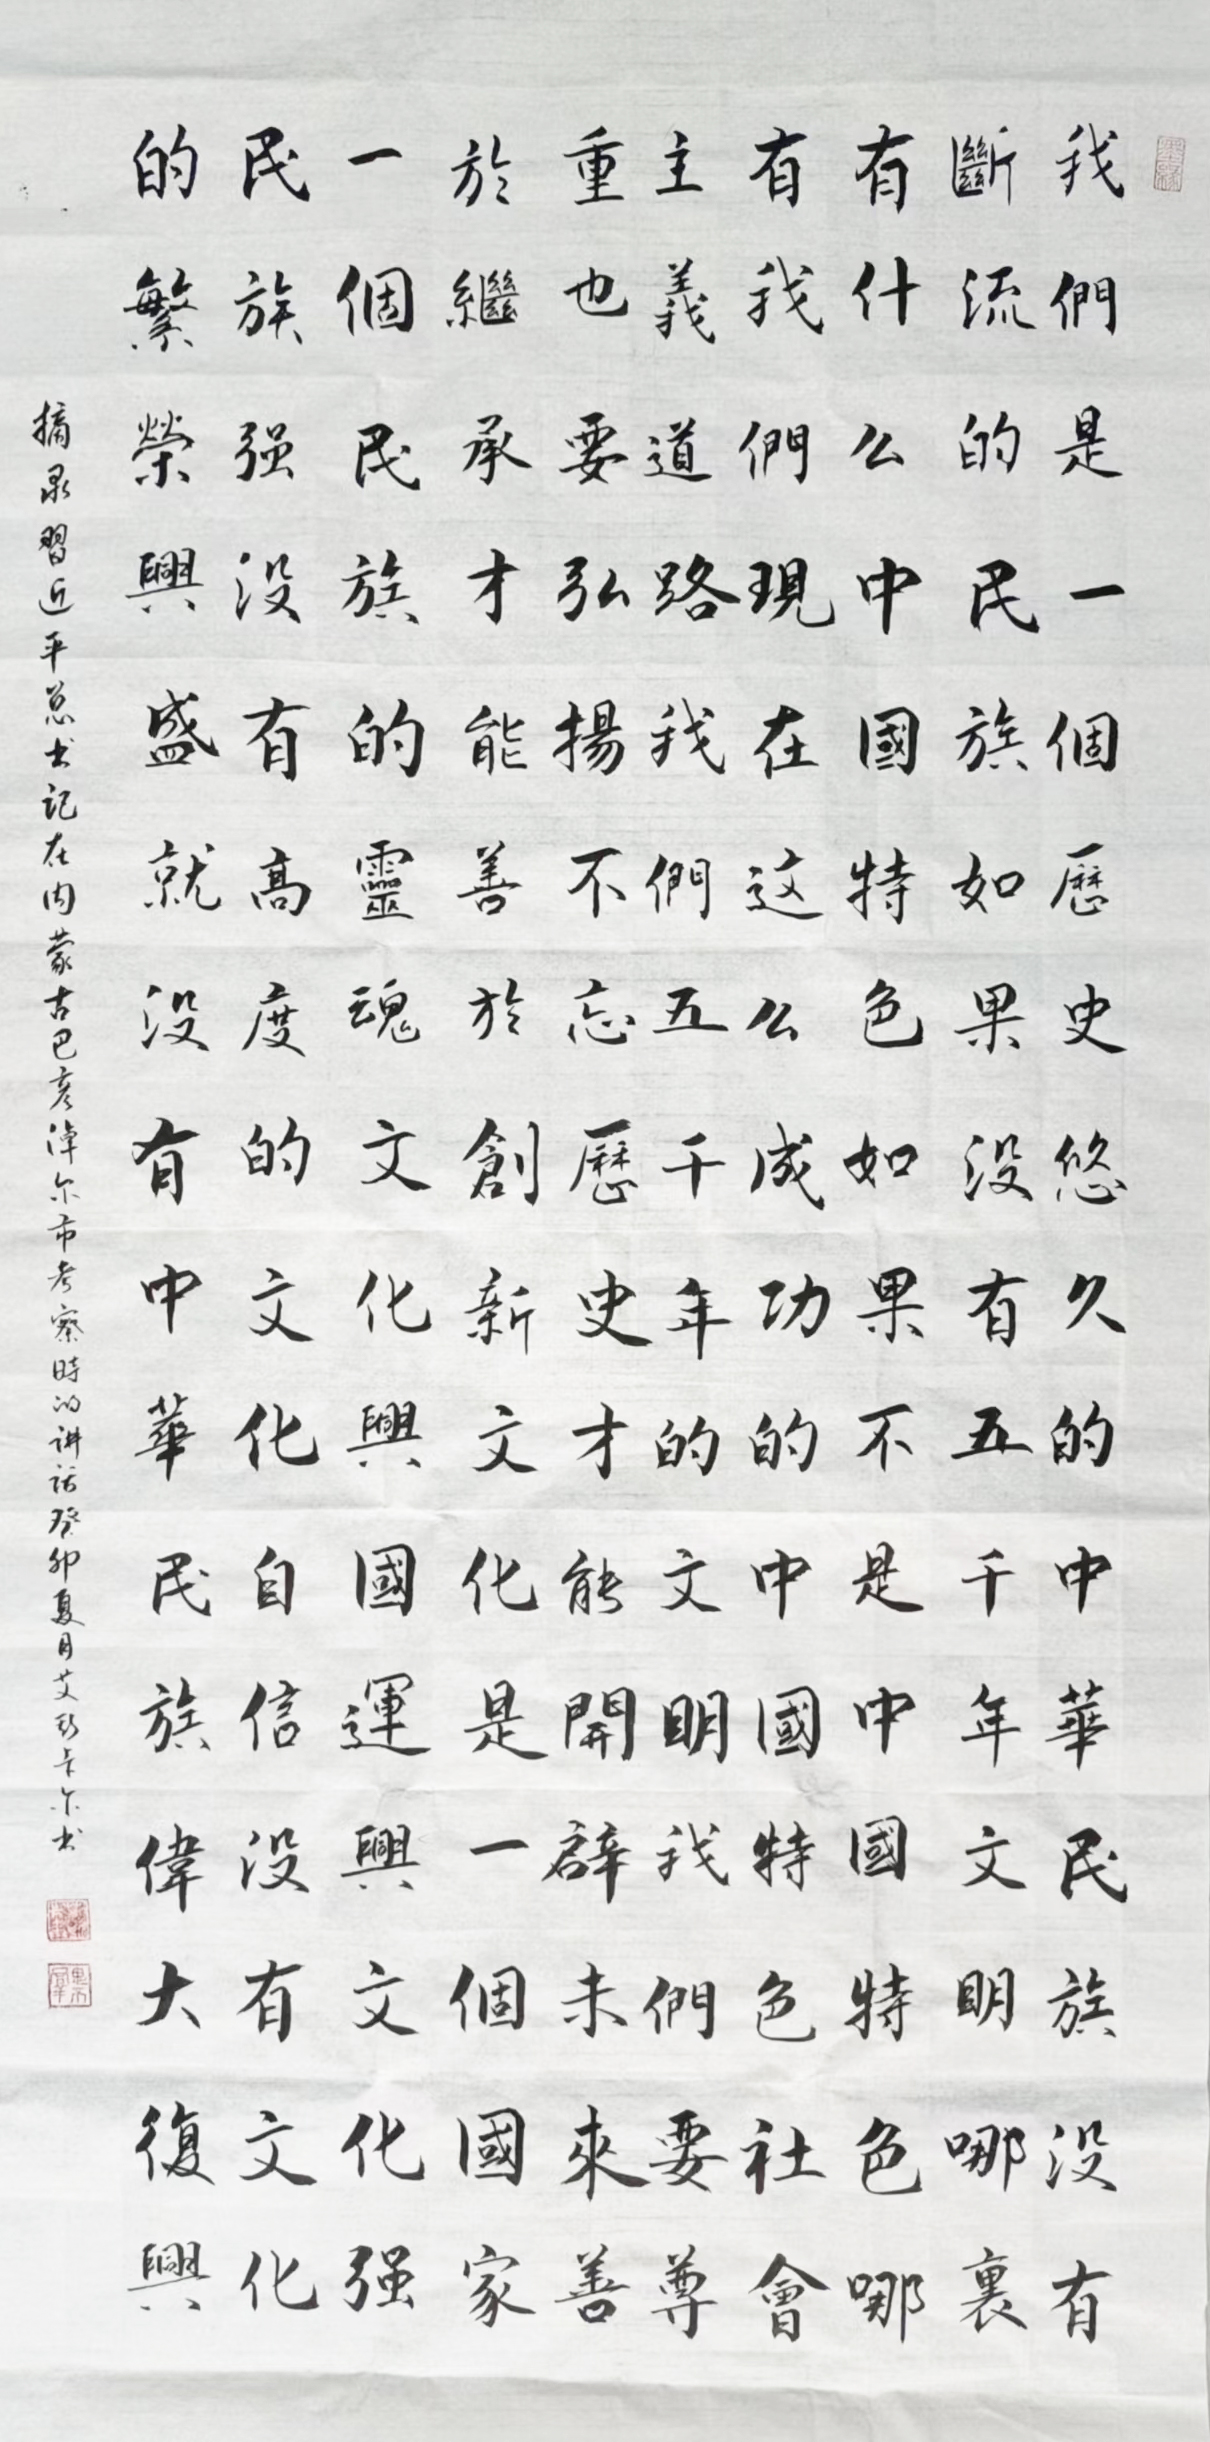 我們是一個歷史悠久的中華民族没有
斷流的民族如果没有五千年文明哪裏
有什么中國特色如果不是中國特色哪
有我們現在這么成功的中國特色社會
主義道路我們五千年的文明我們要尊
重也要弘揚不忘歷史才能開辟未來善
於繼承才能善於創新文化是一個國家
一個民族的靈魂文化興國運興文化强
民族强没有高度的文化自信没有文化
的繁榮興盛就没有中華民族偉大復興
摘录習近平总书记在内蒙古巴彦淖尔市考察時的讲话癸卯夏月艾卡尔书